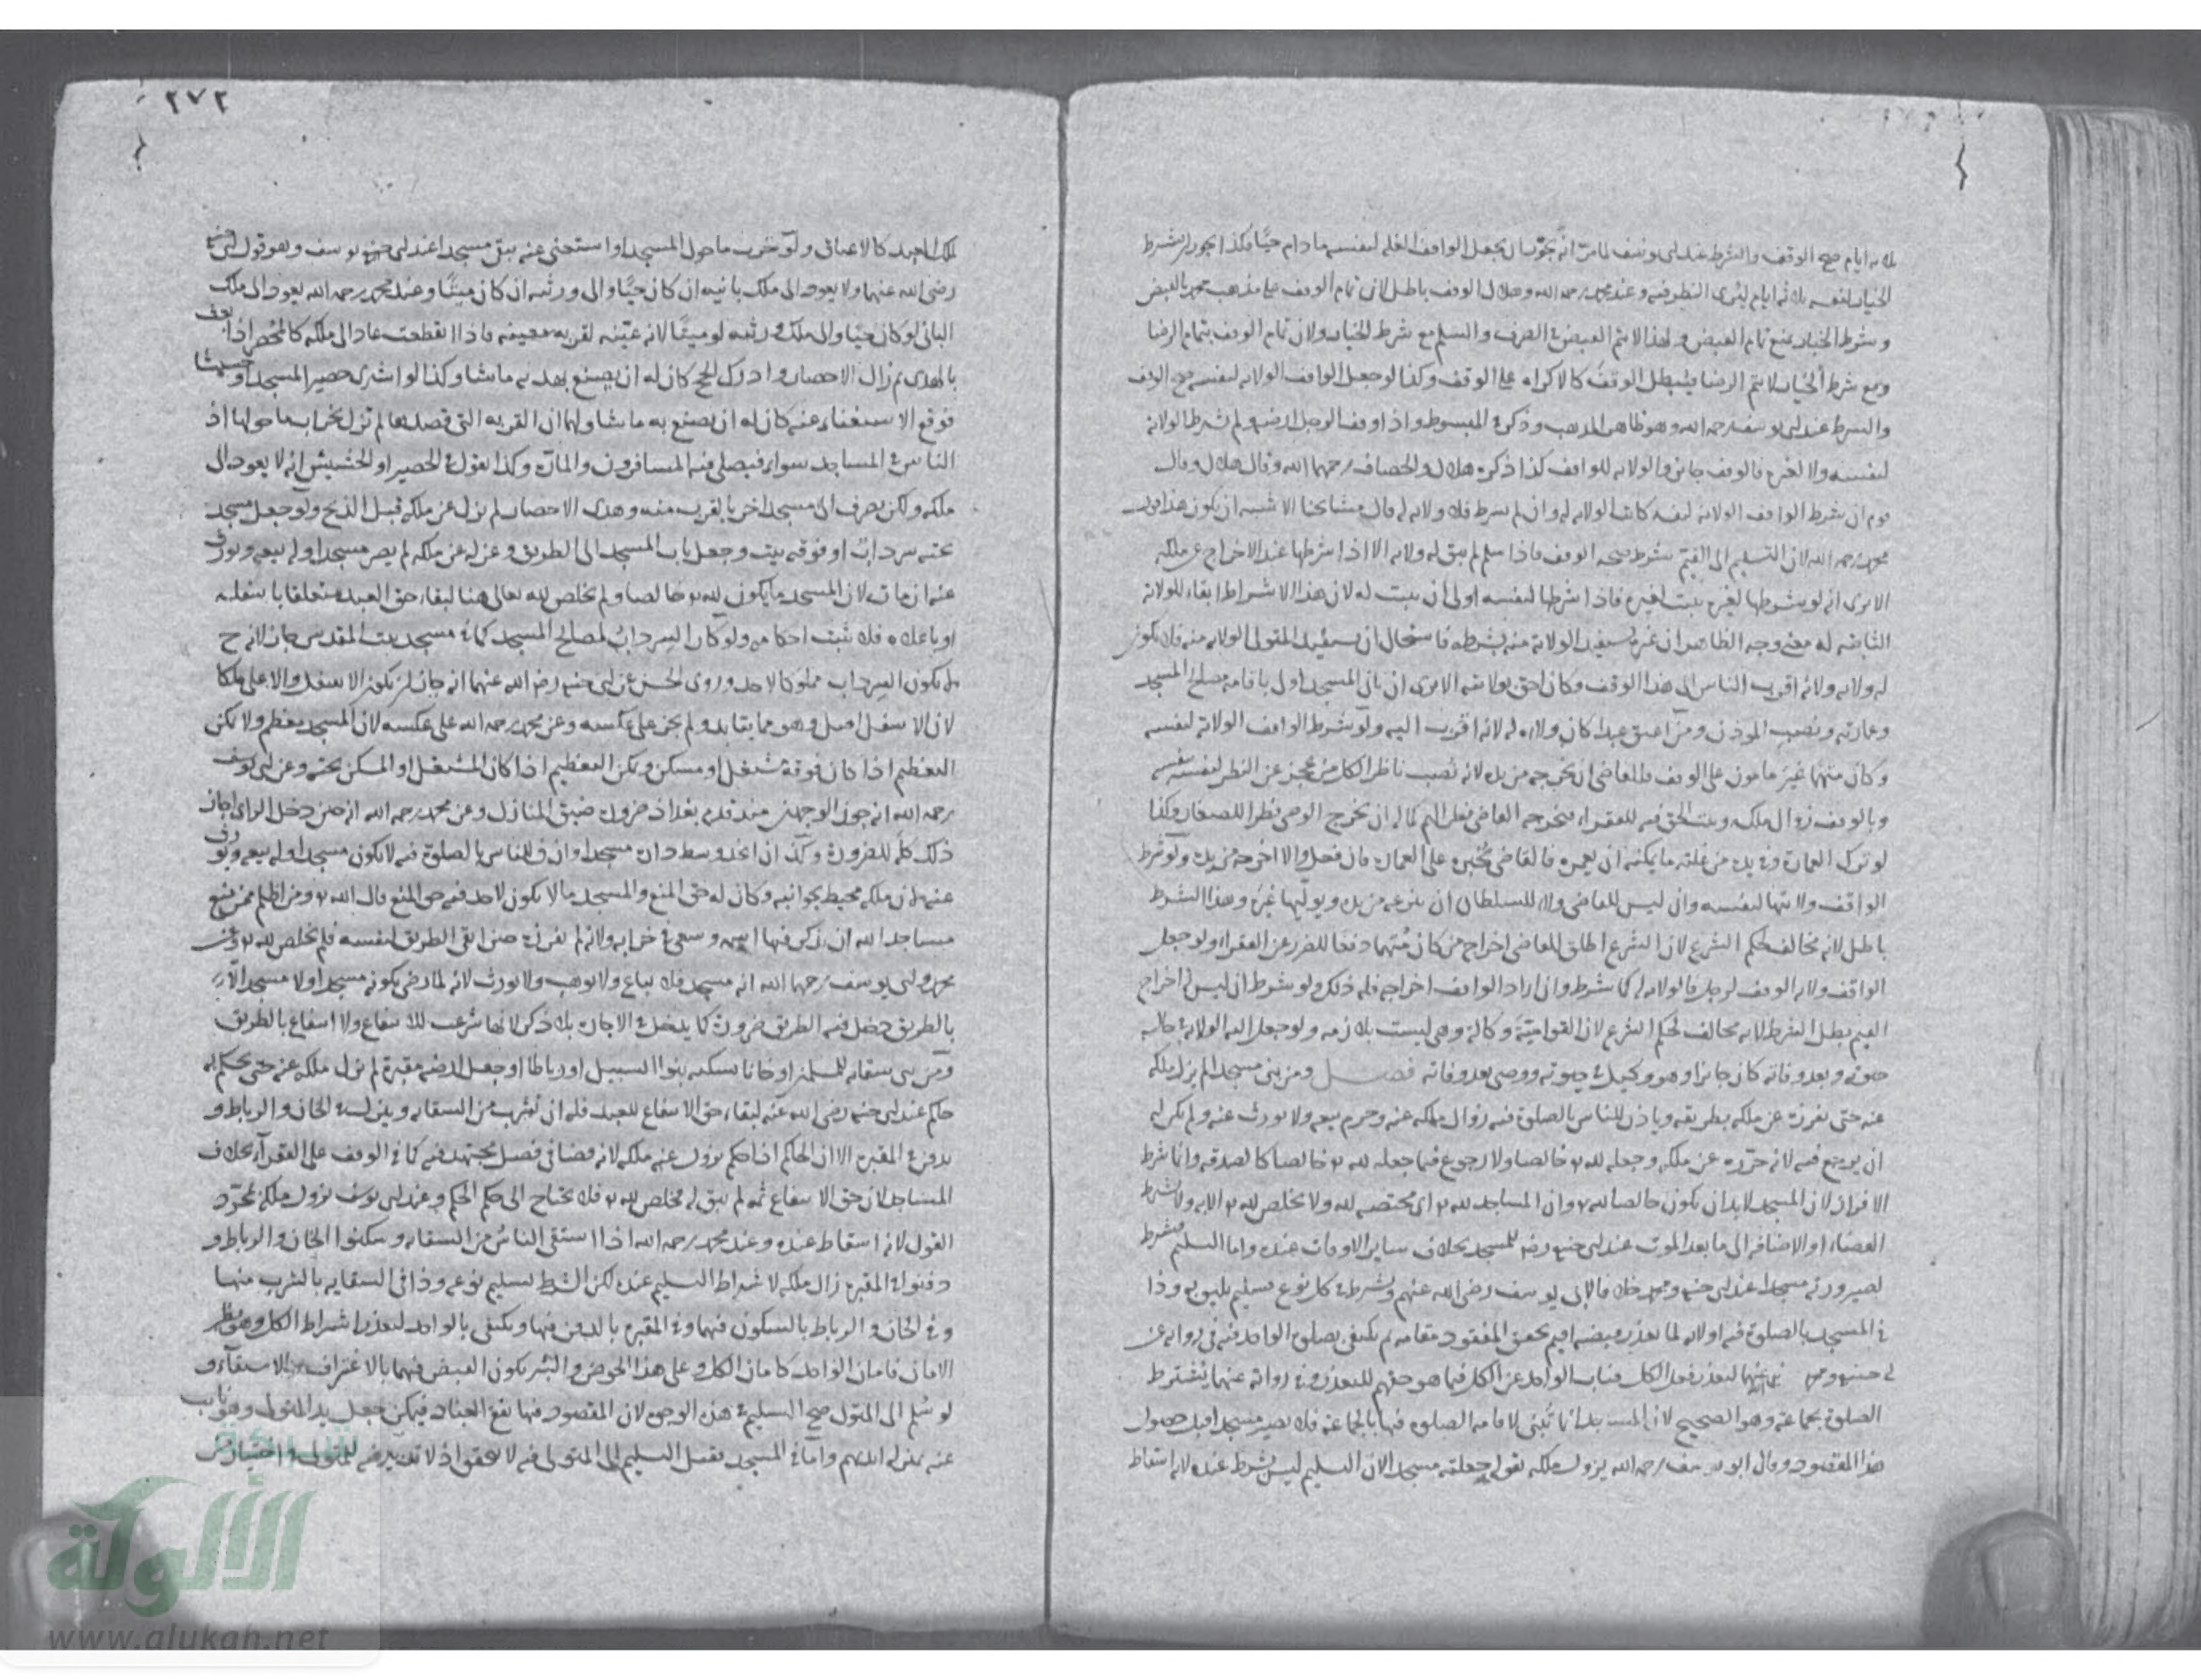 ثلاثة ايام صح الوقف والشرط عند ابي يوسف لما مر انه يجوز ان يجعل الواقف الغلة لنفسه ما دام حيا فكذا يجوز ان يشترط
الخيار لنفسه ثلاثة ايام ليتروى النظر فيه وعند محمد رحمه الله وهلال الوقف باطل لان تمام الوقف على مذهب محمد بالقبض
وشرط الخيار يمنع تمام القبض ولهذا لا يتم القبض في الصرف والسلم مع شرط الخيار ولان تمام الوقف بتمام الرضا
ومع شرط الخيار لا يتم الرضا فيبطل الوقف كالاكراه على الوقف وكذا لو جعل الواقف الولاية لنفسه صح الوقف
والشرط عند ابي يوسف رحمه الله وهو ظاهر المذهب وذكر في المبسوط واذا وقف الرجل ارضه ولم يشترط الولاية
لنفسه ولا لغيره فالوقف جايز والولاية للواقف كذا ذكره هلال والخصاف رحمهما الله وقال هلال وقال
قوم ان شرط الواقف الولاية لنفسه كانت الولاية له وان لم يشرط فلا ولاية له قال مشايخنا الاشبه ان يكون هذا قول
محمد رحمه الله لان التسليم الى القيم شرط صحة الوقف فاذا سلم لم يبق له ولاية الا اذا شرطها عند الاخراج عن ملكه
الا يرى انه لو شرطها لغيره يثبت لغيره فاذا شرطها لنفسه اولى ان يثبت له لان هذا الاشتراط ابقاء للولاية
الثابتة له معنى وجه الظاهر ان غيره يستفيد الولاية منه بشرطه فاستحال ان يستفيد المتولي الولاية منه فلا يكون
له ولاية ولانه اقرب الناس الى هذا الوقف وكان احق بولايته الا يرى ان باني المسجد اولى باقامة مصالح المسجد
وعمارته ونصب المؤذن ومن اعتق عبدا كان ولاؤه له لانه اقرب اليه ولو شرط الواقف الولاية لنفسه
وكان متهما غير مامون على الوقف فللقاضي ان يخرجه من يده لانه نصب ناظرا لكل من عجز عن النظر لنفسه بنفسه
وبالوقف زوال ملكه وثبت الحق فيه للفقراء فيخرجه القاضي نظرا لهم كما له ان يخرج الوصي نظرا للصغار وكذا
لو ترك العمارة وفي يده من غلته ما يمكنه ان يعمره فالقاضي يجبره على العمارة فان فعل والا اخرجه من يده ولو شرط
الواقف ولايتها لنفسه وان ليس للقاضي ولا للسلطان ان ينزعه من يده ويوليها غيره وهذا الشرط
باطل لانه مخالف لحكم الشرع لان الشرع اطلق للقاضي اخراج من كان متهما دفعا للضرر عن الفقراء ولو جعل
الواقف ولاية الوقف لرجل فالولاية له كما شرط وان اراد الواقف اخراجه فله ذلك ولو شرط ان ليس له اخراج
القيم بطل الشرط لانه مخالف لحكم الشرع لان القوامية وكالة وهي ليست بلازمة ولو جعل اليه الولاية في حالة
حيوته وبعد وفاته كان جائزا وهو وكيل في حيوته ووصي بعد وفاته فصل ومن بنى مسجدا لم يزل ملكه
عنه حتى يفرزه عن ملكه بطريقه وياذن للناس بالصلوة فيه زوال ملكه عنه وحرم بيعه ولا يورث عنه ولم يكن له
ان يرجع فيه لانه حرره عن ملكه وجعله لله تع خالصا ولا رجوع فيما جعله لله تع خالصا كالصدقة وانما شرط
الافراز لان المسجد لا بد ان يكون خالصا لله تع وان المساجد لله تع اي مختصة لله ولا يخلص لله تع الا به ولا يشترط
القضاء او الاضافة الى ما بعد الموت عند ابي حنيفة رضه للمسجد بخلاف ساير الاوقات عنده واما التسليم فشرط
لصيرورته مسجدا عند ابي حنيفة ومحمد خلافا لابي يوسف رضي الله عنهم ويشترط في كل نوع تسليم يليق به وذا
في المسجد بالصلوة فيه او لانه لما تعذر قبضه اقيم تحقق المقصود مقامه ثم يكتفى بصلوة الواحد فيه في رواية عن
ابي حنيفة ومحمد رضي الله عنهما لتعذر فعل الكل فناب الواحد عن الكل فيما هو حقهم للتعذر وفي رواية عنهما يشترط
الصلوة بجماعة وهو الصحيح لان المسجد انما يبنى لاقامة الصلوة فيها بالجماعة فلا يصير مسجدا قبل حصول
هذا المقصود وقال ابو يوسف رحمه الله يزول ملكه بقوله جعلته مسجدا لان التسليم ليس بشرط عنده لانه اسقاط
٢٧٢
ملك العبد كالاعتاق ولو خرب ما حول المسجد واستغنى عنه يبقى مسجدا عند ابي يوسف وهو قول ابي حنيفة
رضي الله عنهما ولا يعود الى ملك بانيه ان كان حيا والى ورثته ان كان ميتا وعند محمد رحمه الله يعود الى ملك
الباني لو كان حيا والى ملك ورثته لو ميتا لانه عينه لقربة معينة فاذا انقطعت عاد الى ملكه كالمحصر اذا بعث
بالهدي ثم زال الاحصار وادرك الحج كان له ان يصنع بهديه ما شا وكذا لو اشترى حصير المسجد او حشيشا
فوقع الاستغناء عنه كان له ان يصنع به ما شا ولهما ان القربة التي قصدها لم تزل بخراب ما حولها اذ
الناس في المساجد سواء فيصلي فيه المسافرون والمارة وكذا نقول في الحصير او الحشيش انه لا يعود الى
ملكه ولكن يصرف الى مسجد اخر بالقرب منه وهدي الاحصار لم يزل عن ملكه قبل الذبح ولو جعل مسجد
تحته سرداب او فوقه بيت وجعل باب المسجد الى الطريق وعزله عن ملكه لم يصر مسجدا وله بيعه ويورث
عنه ان مات لان المسجد ما يكون لله تع خالصا ولم يخلص لله تعالى هنا لبقاء حق العبد متعلقا باسفله
او باعلاه فلا يثبت احكامه ولو كان السرداب لمصالح المسجد كما في مسجد بيت المقدس جاز لانه ح
لا يكون السرداب مملوكا لاحد وروى الحسن عن ابي حنيفة رضي الله عنهما انه جاز ان يكون الاسفل والاعلى ملكا
لان الاسفل اصل وهو مما يتابد ولم يجز على عكسه وعن محمد رحمه الله على عكسه لان المسجد معظم ولا يمكن
التعظيم اذا كان فوقه مستغل او مسكن ويمكن التعظيم اذا كان المستغل او المسكن تحته وعن ابي يوسف
رحمه الله انه جوز الوجهين عند قدم بغداد ضرورة ضيق المنازل وعن محمد رحمه الله انه حين دخل الراي اجاز
ذلك كله للضرورة وكذا ان اتخذ وسط داره مسجدا واذن للناس بالصلوة فيه لا يكون مسجدا وله بيعه ويورث
عنه لان ملكه محيط بجوانبه وكان له حق المنع والمسجد ما لا يكون لاحد فيه حق المنع قال الله تع ومن اظلم ممن منع
مساجد الله ان يذكر فيها اسمه وسعى في خرابها ولانه لم يفرزه حين ابقى الطريق لنفسه فلم يخلص لله تع وعن
محمد وابي يوسف رحمهما الله انه مسجد فلا يباع ولا يوهب ولا يورث لانه لما رضي بكونه مسجدا ولا مسجد الا
بالطريق دخل فيه الطريق ضرورة كما يدخل في الاجارة بلا ذكر لانها شرعت للانتفاع ولا انتفاع بالطريق
ومن بنى سقاية للمسلمين او خانا يسكنه بنوا السبيل او رباطا او جعل ارضه مقبرة لم يزل ملكه عنه حتى يحكم به
حاكم عند ابي حنيفة رضي الله عنه لبقاء حق الانتفاع للعبد فله ان يشرب من السقاية وينزل في الخان والرباط و
يدفن في المقبرة الا ان الحاكم اذا حكم يزول عنه ملكه لانه قضا في فصل مجتهد فيه كما في الوقف على الفقراء بخلاف
المساجد لان حق الانتفاع ثمه لم يبق له فخلص لله تع فلا يحتاج الى حكم الحاكم وعند ابي يوسف يزول ملكه بمجرد
القول لانه اسقاط عنده وعند محمد رحمه الله اذا استقى الناس من السقاية وسكنوا الخان والرباط و
دفنوا في المقبرة زال ملكه لاشتراط التسليم عنده لكن الشرط تسليم نوعه وذا في السقاية بالشرب منها
وفي الخان والرباط بالسكون فيهما وفي المقبرة بالدفن فيها ويكتفى بالواحد لتعذر اشتراط الكل
الامان فامان الواحد كامان الكل وعلى هذا الحوض والبئر يكون القبض فيهما بالاغتراف والاستقاء و
لو سلم الى المتولي صح التسليم في هذه الوجوه لان المقصود فيها نفع العباد فيمكن جعل يد المتولي وهو نايب
عنه بمنزلة ايديهم واما في المسجد فقيل التسليم الى المتولي فيه لا يتحقق اذ لا تدبير فيه للمتولي
شبكة
الألوكة
www.alukah.net